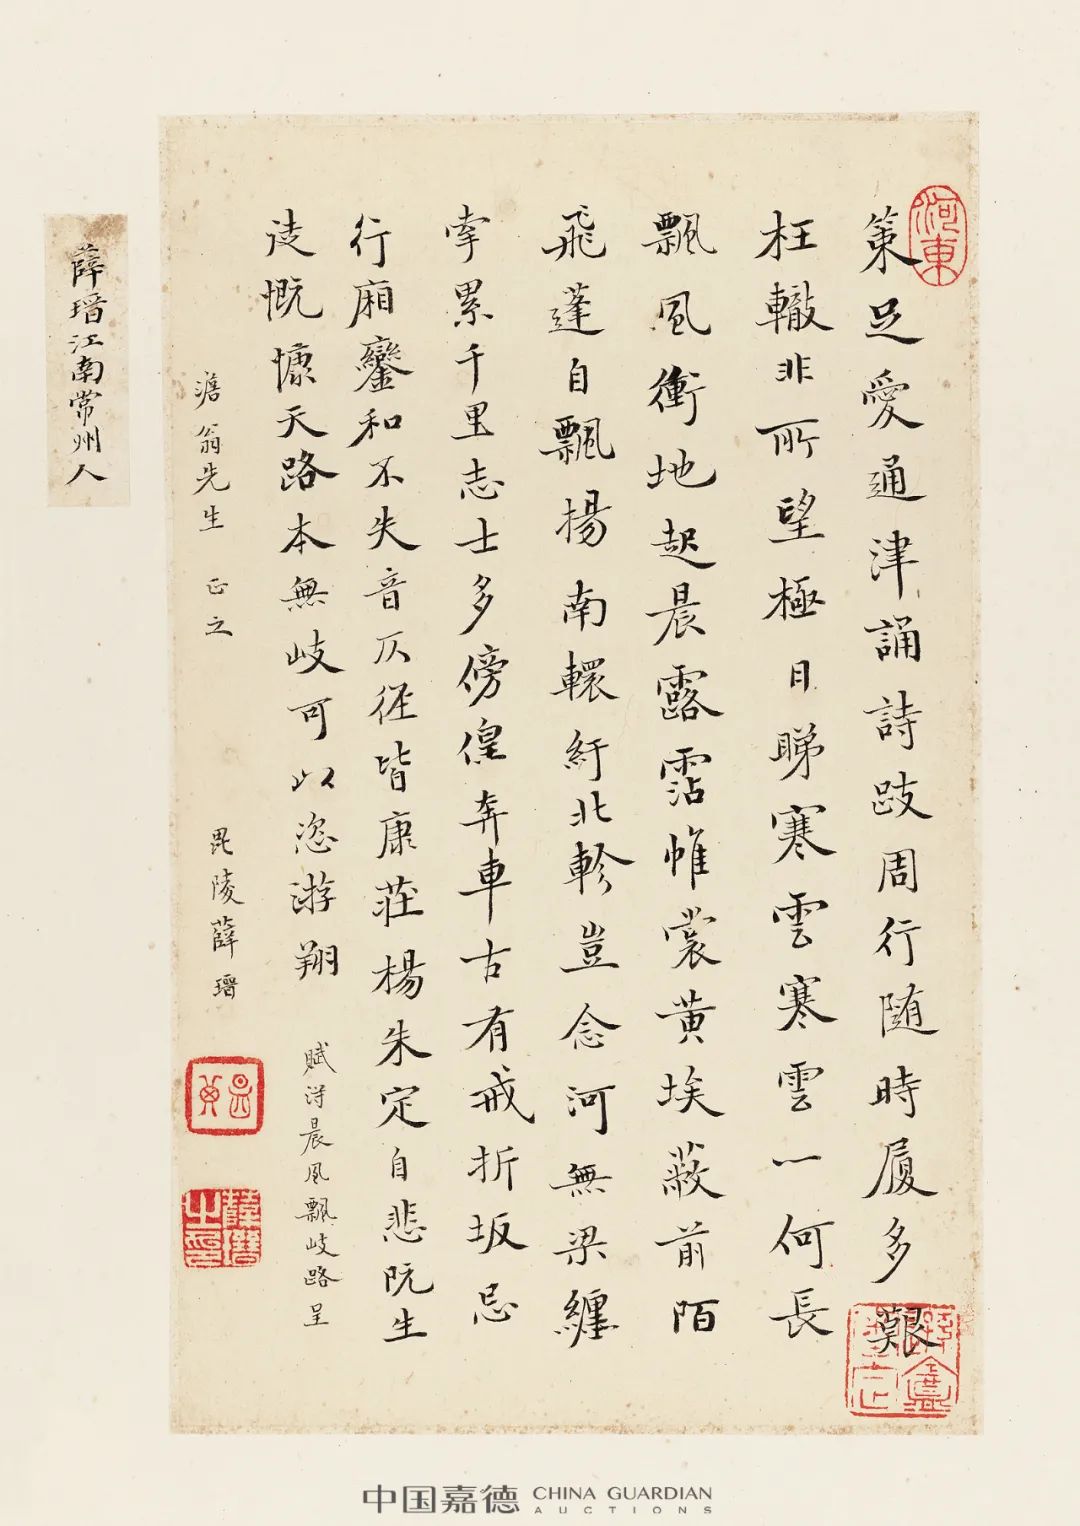 策足愛通津誦詩跂周行随時履多艱
枉轍非所望極目睇寒雲寒雲一何長
飄風衝地起晨露霑帷裳黄埃蔽前陌
飛蓬自飄揚南轅紆北軫豈念河無梁纏
牽累千里志士多傍偟奔車古有戒折坂忌
行廂鑾和不失音仄徑皆康莊楊朱定自悲阮生
徒慨慷天路本無岐可以恣游翔
賦得晨風飄岐路呈
澹翁先生 正之
毘陵薛瑨
河東
薛瑨江南常州人
中国嘉德 CHINA GUARDIAN
AUCTIONS